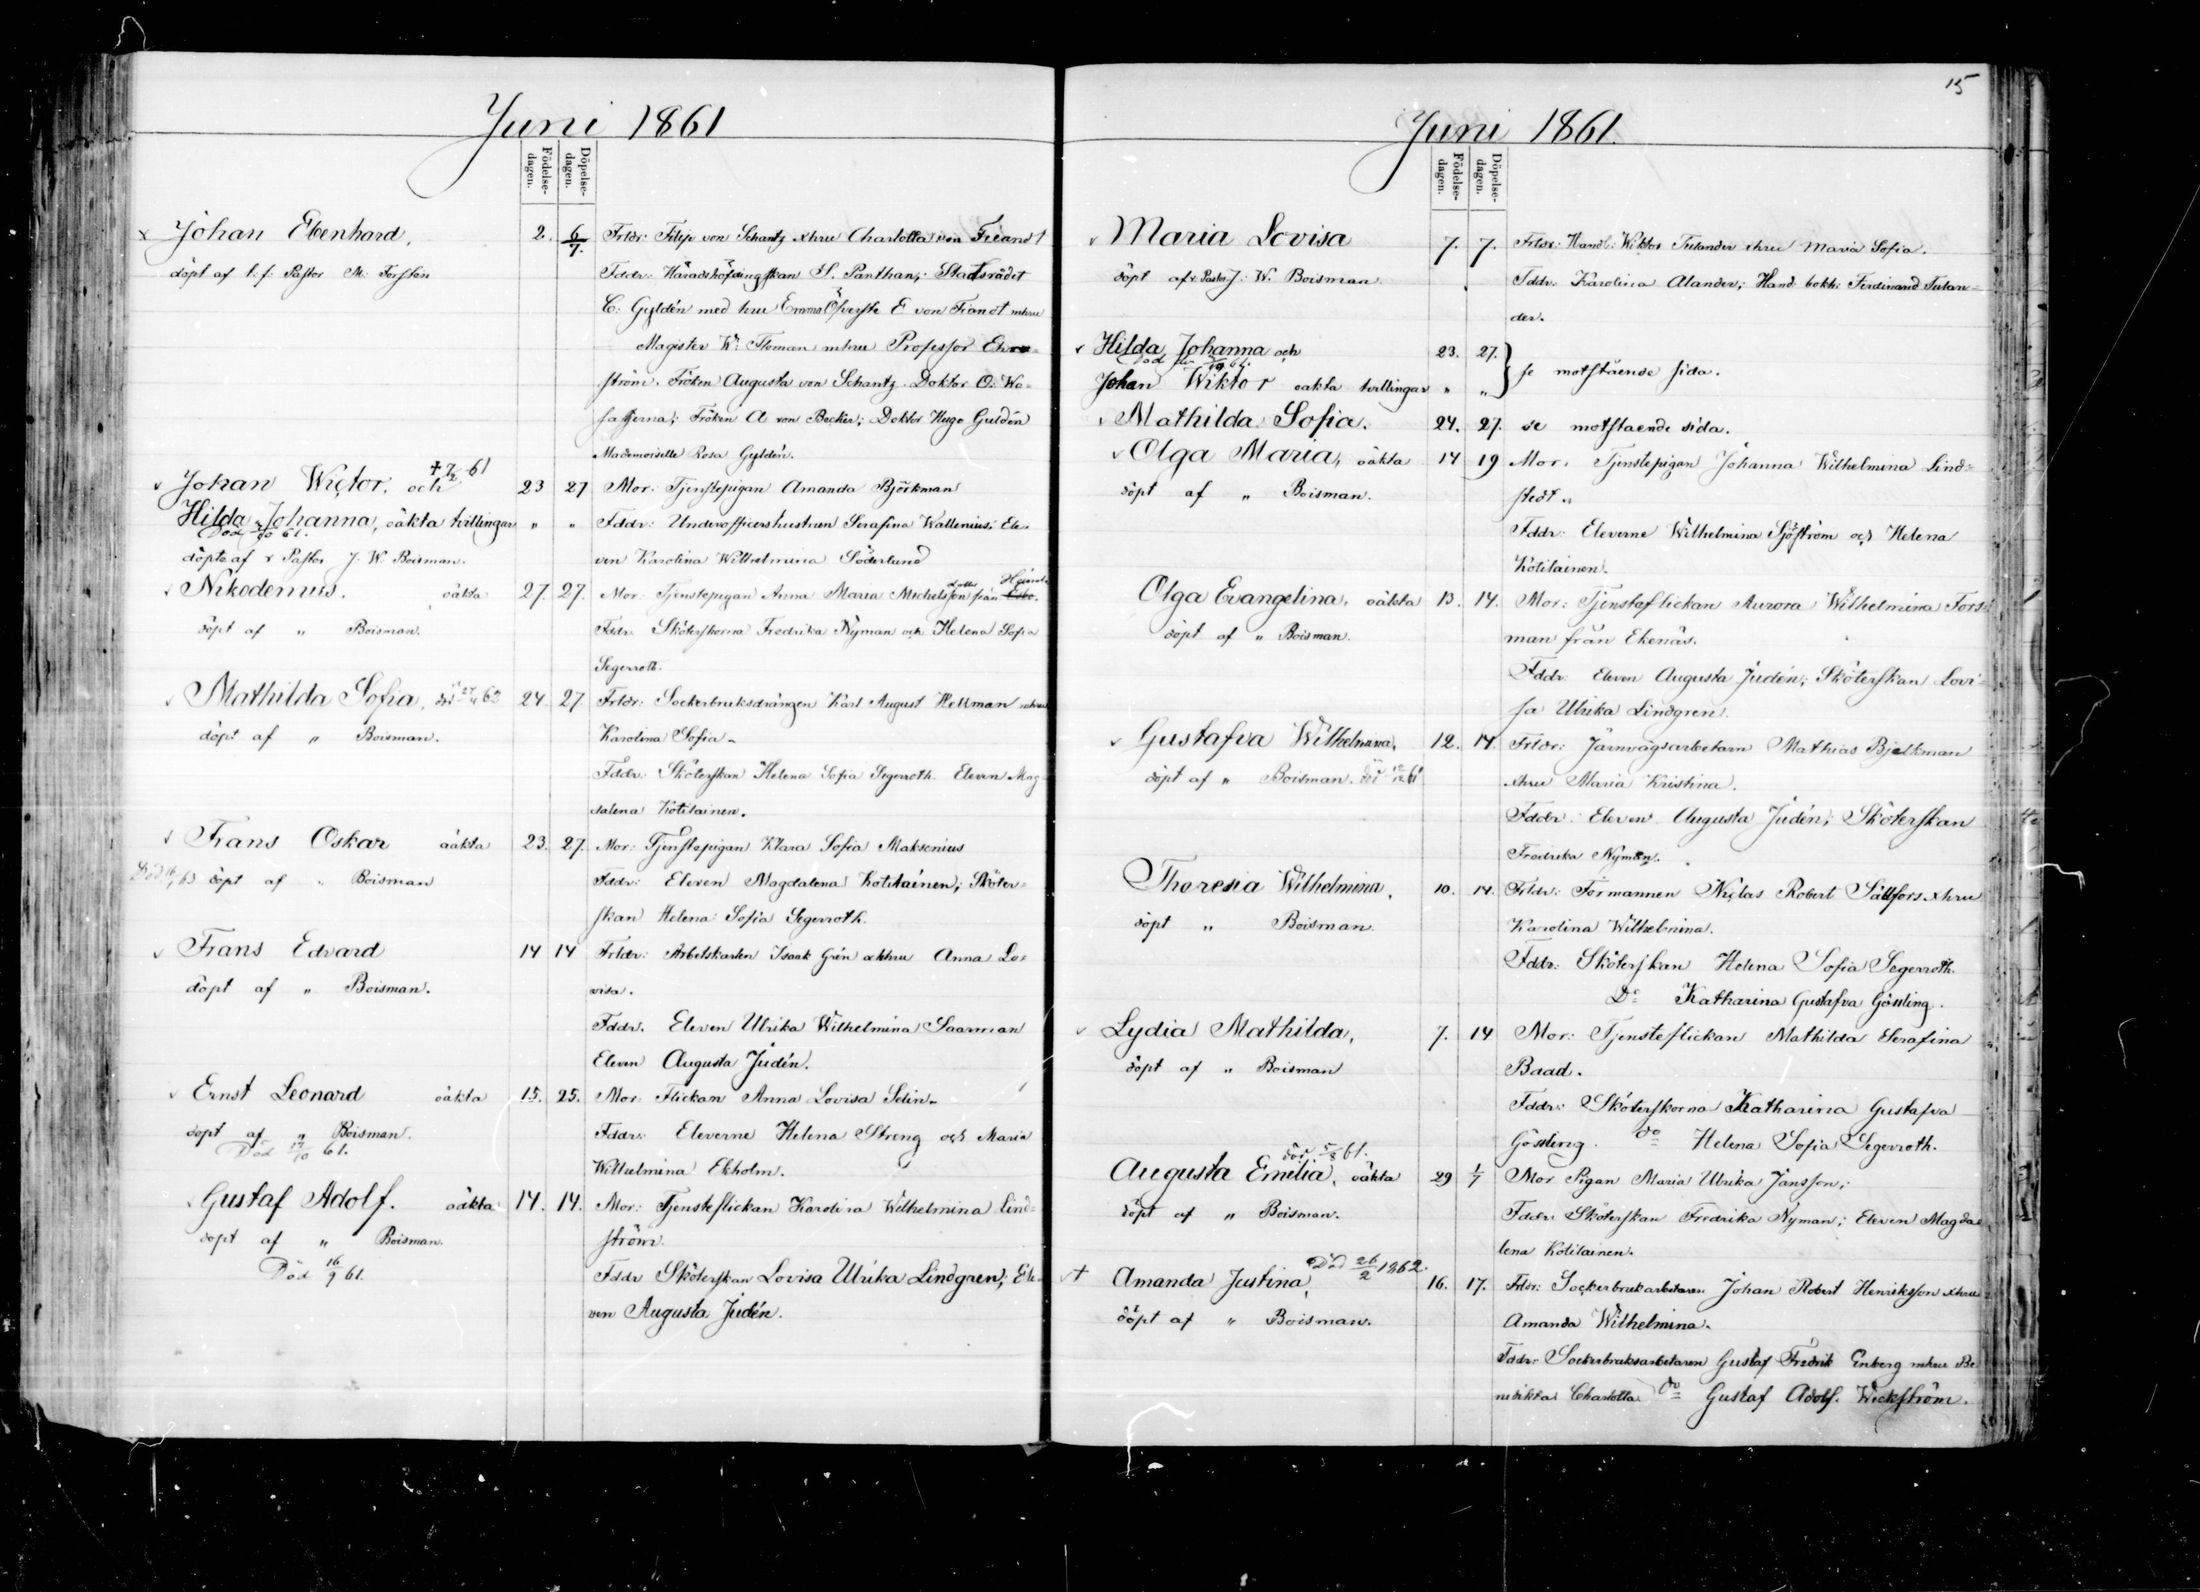 Juni 1861
Födelse-dagen.
Döpelse-dagen.
Johan Ebenhard, 2. 6/7. Frldr: Filip von Schantz & hru Charlotta von Fieandt
döpt af t: f: Pastor M: Forstén Fddr: Häradshöfdingskan S. Panthan; Statsrådet
C: Gyldén med hru Emma Öfverste E von Fiandt m hru
Magister W: Floman m hru Professor
ström. Fröken Augusta von Schantz. Doktor O: Wa-
sastjerna; Fröken A von Becker; Doktor Hugo Guldén
Mademoiselle Rosa Gyldén.
Johan Wictor, och † 7/2 61 23 27 Mor: Tjenstepigan Amanda Björkman
Hilda Johanna, oäkta tvillingar " " Fddr: Underofficershustrun Serafina Wallenius; Ele-
Död 61.
döpte af v Pastor J. W. Boisman. ven Karolina Wilhelmina Söderlund
Nikodemus. oäkta 27. 27. Mor: Tjenstepigan Anna Maria Michelsson från
döpt af " Boisman. Fddr. Sköterskorna Fredrika Nyman och Helena Sofia
Segerroth.
Mathilda Sofia, 24. 27. Frldr: Sockerbruksdrängen Karl August Hellman m hru
döpt af " Boisman. Karolina Sofia.
Fddr: Sköterskan Helena Sofia Segerroth. Eleven Mag-
dalena Kotilainen.
Frans Oskar oäkta 23. 27. Mor: Tjenstepigan Klara Sofia Maksenius
döpt af " Boisman Fddr: Eleven Magdalena Kotilainen; Sköter-
skan Helena Sofia Segerroth.
Frans Edvard 14 14 Frldr: Arbetskarlen Isaak Grén & hru Anna Lo-
döpt af " Boisman. visa.
Fddr. Eleven Ulrika Wilhelmina Saarman
Eleven Augusta Judén.
Ernst Leonard oäkta 15. 25. Mor: Flickan Anna Lovisa Selin.
döpt af " Boisman. Fddr: Eleverne Helena Streng och Maria
Död 17/10 61. Wilhelmina Ekholm.
Gustaf Adolf. oäkta 14. 14. Mor: Tjensteflickan Karolina Wilhelmina Lind-
döpt af " Boisman. ström.
Död 16/9 61. Fddr Sköterskan Lovisa Ulrika Lindgren; Ele-
ven Augusta Judén.
15
Juni 1861.
Födelse-dagen.
Döpelse-dagen.
Maria Lovisa 7. 7. Frldr: Handl: Wiktor Tulander & hru Maria Sofia.
döpt af v. Pastor J: W. Boisman. Fddr: Karolina Alander; Hand. bokh: Ferdinand Tulan-
der.
Hilda Johanna och 23. 27.
se motstående sida.
Johan Wiktor oäkta tvillingar " "
Mathilda Sofia. 24. 27. se motstaende sida.
Olga Maria, oäkta 14 19 Mor: Tjenstepigan Johanna Wilhelmina Lind-
döpt af " Boisman. stedt.
Fddr: Eleverne Wilhelmina Sjöström och Helena
Kotilainen.
Olga Evangelina, oäkta 13. 14. Mor: Tjensteflickan Aurora Wilhelmina Fors-
döpt af " Boisman. man från Ekenäs.
Fddr: Eleven Augusta Judén; Sköterskan Lovi-
sa Ulrika Lindgren.
Gustafva Wilhelmina, 12. 14. Frldr: Järnvägsarbetarn Mathias Bjelkman
döpt af " Boisman. & hru Maria Kristina.
Fddr: Eleven Augusta Judén; Sköterskan
Fredrika Nyman.
Theresia Wilhelmina, 10. 14. Frldr: Formannen Niclas Robert Sällfors & hru
döpt " Boisman. Karolina Wilhelmina.
Fddr: Sköterskan Helena Sofia Segerroth.
Do Katharina Gustafva Gössling.
Lydia Mathilda, 7. 14 Mor: Tjensteflickan Mathilda Serafina
döpt af " Boisman Baad.
Fddr: Sköterskorna Katharina Gustafva
Gössling. do Helena Sofia Segerroth.
död 5/8 61.
Augusta Emilia, oäkta 29 1/7 Mor Pigan Maria Ulrika Jansson;
döpt af " Boisman. Fddr: Sköterskan Fredrika Nyman; Eleven Magda-
lena Kotilainen.
Död 26/2 1862.
† Amanda Justina, 16. 17. Frldr: Sockerbrukarbetaren Johan Robert Henriksson & hru
döpt af " Boisman. Amanda Wilhelmina.
Fddr: Sockerbruksarbetaren Gustaf Fredrik Enberg m hru Be-
nedikta Charlotta do Gustaf Adolf. Weckström.